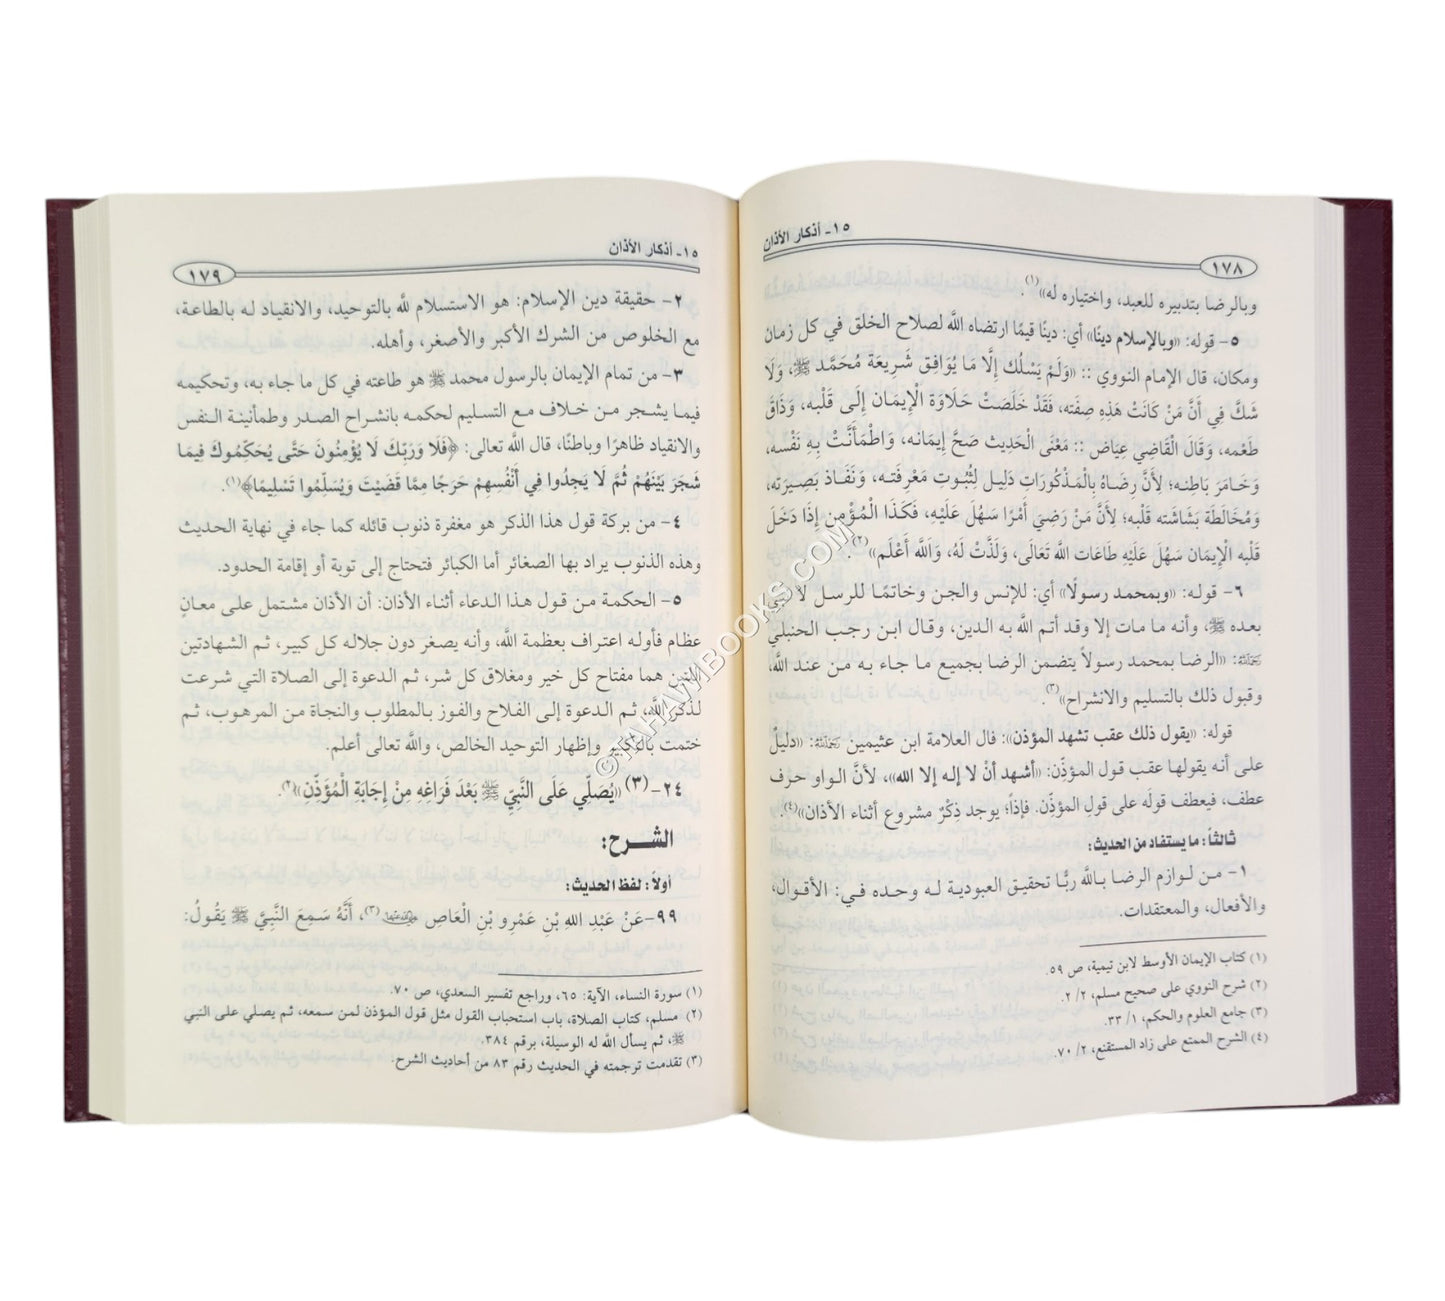 ١٥- أذكار الأذان
١٧٨
وبالرضا بتدبيره للعبد، واختياره له»(١).
٥- قوله: «وبالإسلام دينًا» أي: دينًا قيمًا ارتضاه الله لصلاح الخلق في كل زمان
ومكان، قال الإمام النووي :: «وَلَمْ يَسْلُك إِلَّا مَا يُوَافِق شَرِيعَة مُحَمَّد ﷺ، وَلَا
شَكَّ فِي أَنَّ مَنْ كَانَتْ هَذِهِ صِفَته، فَقَدْ خَلَصَتْ حَلَاوَة الْإِيمَان إِلَى قَلْبه، وَذَاقَ
طَعْمه، وَقَالَ الْقَاضِي عِيَاض :: مَعْنَى الْحَدِيث صَحَّ إِيمَانه، وَاطْمَأَنَّتْ بِهِ نَفْسه،
وَخَامَرَ بَاطِنه؛ لِأَنَّ رِضَاهُ بِالْمَذْكُورَاتِ دَلِيل لِثُبُوتِ مَعْرِفَته، وَنَفَاذ بَصِيرَته،
وَمُخَالَطَة بَشَاشَته قَلْبه؛ لِأَنَّ مَنْ رَضِيَ أَمْرًا سَهُلَ عَلَيْهِ، فَكَذَا الْمُؤْمِن إِذَا دَخَلَ
قَلْبه الْإِيمَان سَهُلَ عَلَيْهِ طَاعَات الله تَعَالَى، وَلَذَّتْ لَهُ، وَالله أَعْلَم»(٢).
٦- قوله: «وبمحمد رسولًا» أي: للإنس والجن وخاتمًا للرسل لا نبي
بعده ﷺ، وأنه ما مات إلا وقد أتم الله به الدين، وقال ابن رجب الحنبلي
رَحِمَهُ اللهُ: «الرضا بمحمد رسولاً يتضمن الرضا بجميع ما جاء به من عند الله،
وقبول ذلك بالتسليم والانشراح»(٣).
قوله: «يقول ذلك عقب تشهد المؤذن»: قال العلامة ابن عثيمين رَحِمَهُ اللهُ: «دليلٌ
على أنه يقولها عقب قول المؤذّن: «أشهد أنْ لا إله إلا الله»، لأنَّ الواو حرف
عطف، فيعطف قولَه على قولِ المؤذّن. فإذاً؛ يوجد ذِكْرٌ مشروع أثناء الأذان»(٤).
ثالثاً: ما يستفاد من الحديث:
١- من لوازم الرضا بالله ربًّا تحقيق العبودية له وحده في: الأقوال،
والأفعال، والمعتقدات.
(١) كتاب الإيمان الأوسط لابن تيمية، ص ٥٩.
(٢) شرح النووي على صحيح مسلم، ٢/ ٢.
(٣) جامع العلوم والحكم، ١/ ٣٣.
(٤) الشرح الممتع على زاد المستقنع، ٢/ ٧٠.
١٥- أذكار الأذان
١٧٩
٢- حقيقة دين الإسلام: هو الاستسلام لله بالتوحيد، والانقياد له بالطاعة،
مع الخلوص من الشرك الأكبر والأصغر، وأهله.
٣- من تمام الإيمان بالرسول محمد ﷺ هو طاعته في كل ما جاء به، وتحكيمه
فيما يشجر من خلاف مع التسليم لحكمه بانشراح الصدر وطمأنينة النفس
والانقياد ظاهرًا وباطنًا، قال الله تعالى: ﴿فَلَا وَرَبِّكَ لَا يُؤْمِنُونَ حَتَّى يُحَكِّمُوكَ فِيمَا
شَجَرَ بَيْنَهُمْ ثُمَّ لَا يَجِدُوا فِي أَنْفُسِهِمْ حَرَجًا مِمَّا قَضَيْتَ وَيُسَلِّمُوا تَسْلِيمًا﴾(١).
٤- من بركة قول هذا الذكر هو مغفرة ذنوب قائله كما جاء في نهاية الحديث
وهذه الذنوب يراد بها الصغائر أما الكبائر فتحتاج إلى توبة أو إقامة الحدود.
٥- الحكمة من قول هذا الدعاء أثناء الأذان: أن الأذان مشتمل على معانٍ
عظام فأوله اعتراف بعظمة الله، وأنه يصغر دون جلاله كل كبير، ثم الشهادتين
اللتين هما مفتاح كل خير ومغلاق كل شر، ثم الدعوة إلى الصلاة التي شرعت
لذكر الله، ثم الدعوة إلى الفلاح والفوز بالمطلوب والنجاة من المرهوب، ثم
ختمت بالتكبير وإظهار التوحيد الخالص، والله تعالى أعلم.
٢٤-(٣) «يُصَلِّي عَلَى النَّبِيِّ ﷺ بَعْدَ فَرَاغِهِ مِنْ إِجَابَةِ الْمُؤَذِّنِ»(٢).
الشرح:
أولاً: لفظ الحديث:
٩٩-عَنْ عَبْدِ اللهِ بْنِ عَمْرِو بْنِ الْعَاصِ رَضِيَ اللهُ عَنْهُمَا(٣)، أَنَّهُ سَمِعَ النَّبِيَّ ﷺ يَقُولُ:
(١) سورة النساء، الآية: ٦٥، وراجع تفسير السعدي، ص ٧٠.
(٢) مسلم، كتاب الصلاة، باب استحباب القول مثل قول المؤذن لمن سمعه، ثم يصلي على النبي
ﷺ، ثم يسأل الله له الوسيلة، برقم ٣٨٤.
(٣) تقدمت ترجمته في الحديث رقم ٨٣ من أحاديث الشرح:
© TAHAWIBOOKS.COM